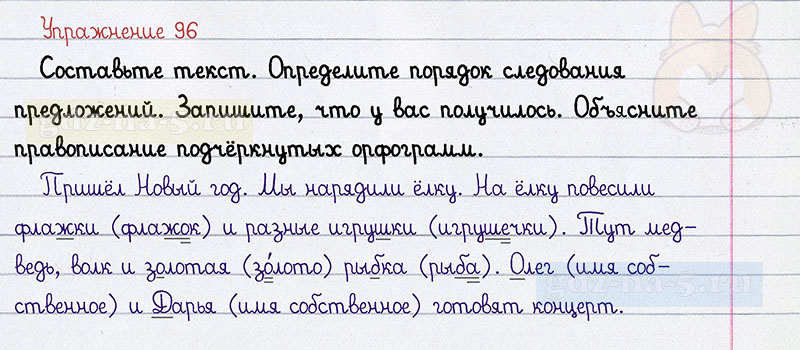 Упражнение 96
Составьте текст. Определите порядок следования
предложений. Запишите, что у вас получилось. Объясните
правописание подчёркнутых орфограмм.
Пришёл Новый год. Мы нарядили ёлку. На ёлку повесили
флажки (флажок) и разные игрушки (игрушечки). Тут мед-
ведь, волк и золотая (зо́лото) рыбка (рыба). Олег (имя соб-
ственное) и Дарья (имя собственное) готовят концерт.
gdz-na-5.ru
gdz-na-5.ru